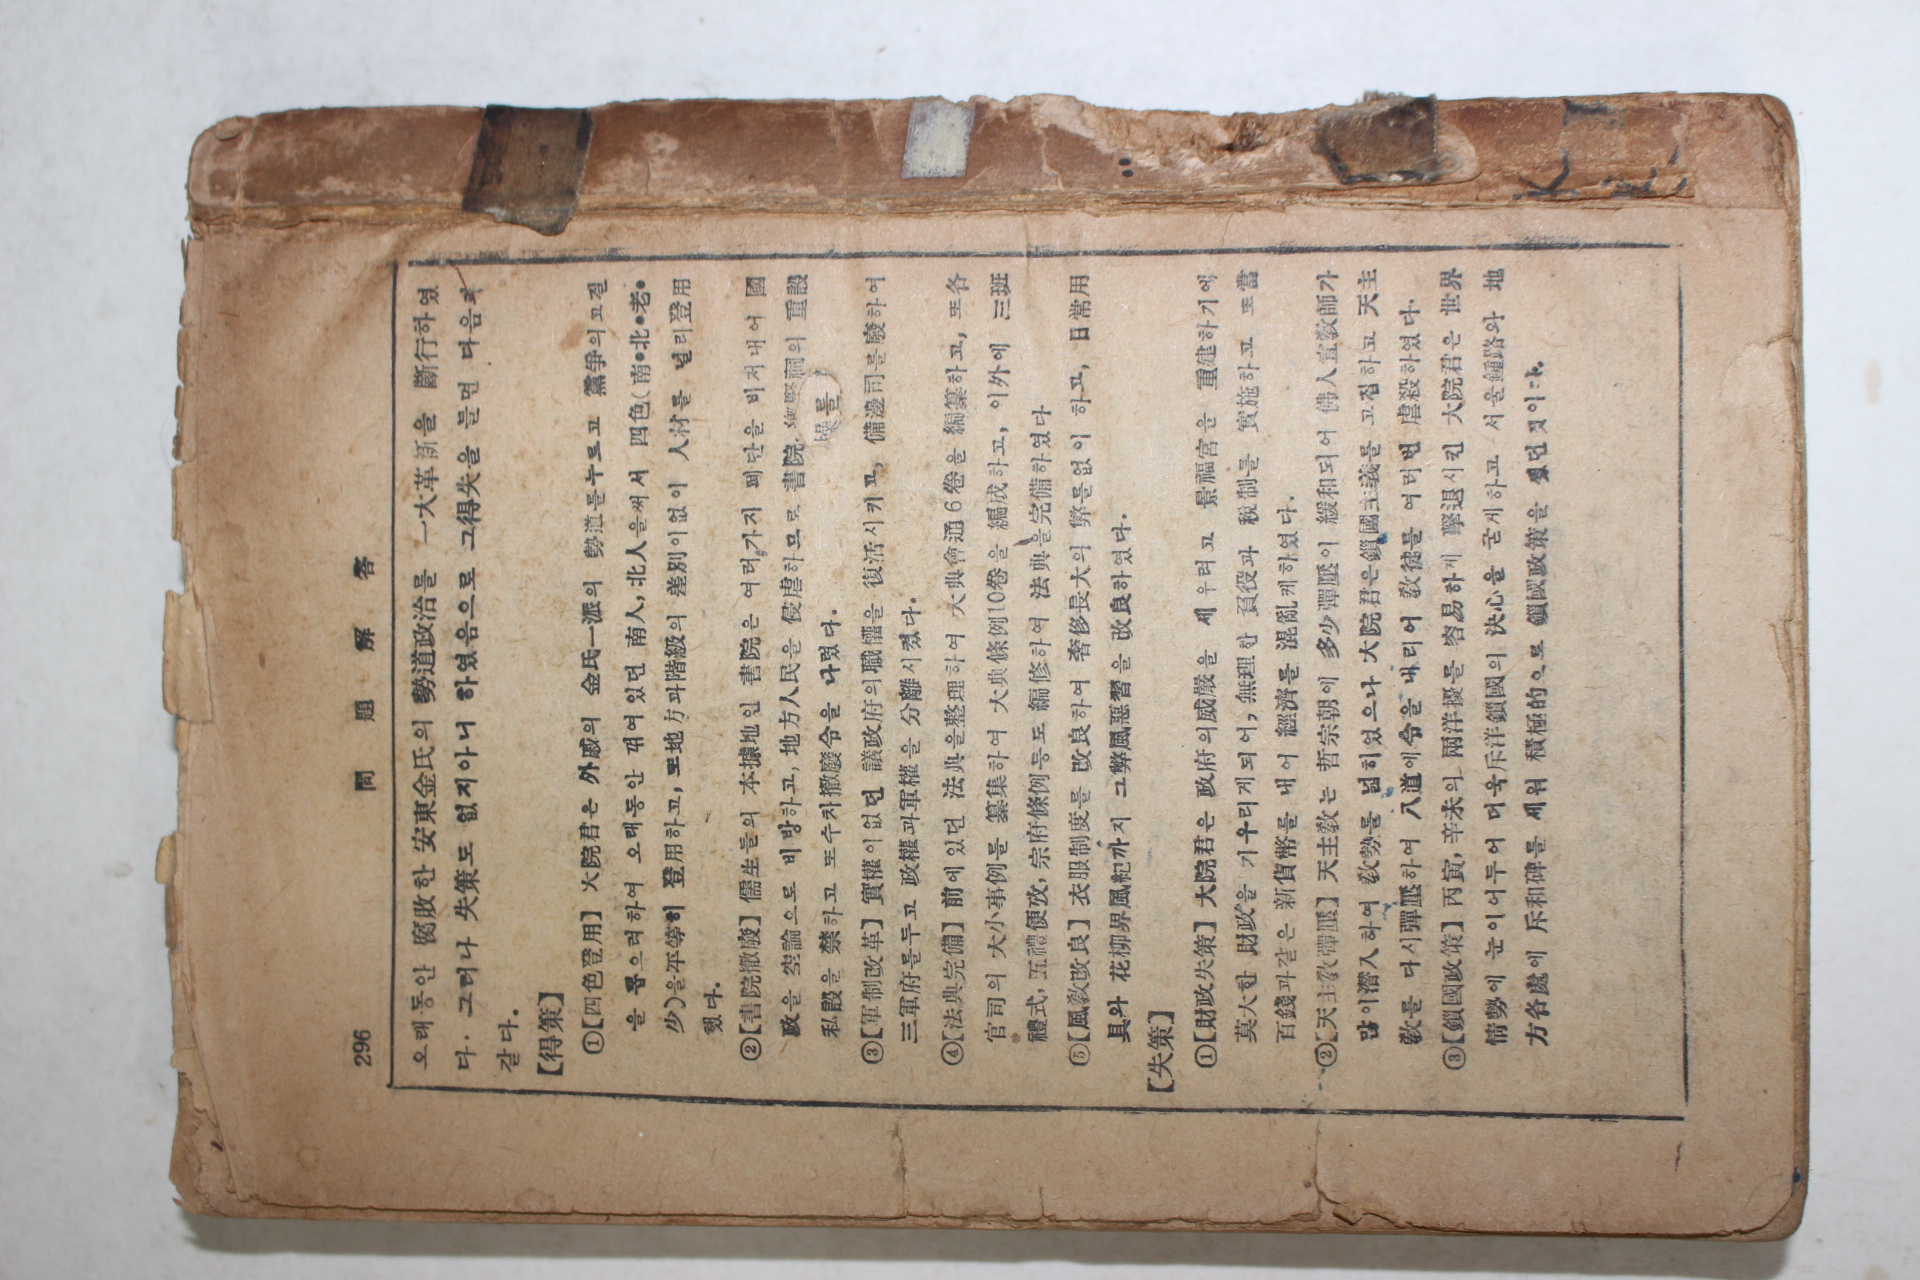 296
問 題 解 答
오래동안 腐敗한 安東金氏의 勢道政治를 一大革新을 斷行하였
다. 그러나 失策도 없지아니 하였음으로 그得失을 들면 다음과
같다.
【得策】
①【四色登用】 大院君은 外戚의 金氏一派의 勢道를누르고 黨爭의고질
을 하여 오래동안 꺾여있던 南人,北人을써서 四色(南•北•老•
少)을平等히 登用하고,또地方과階級의 差別이없이 人材를 널리登用
했다.
②【書院撤廢】儒生들의 本據地인 書院은 여러가지 폐단을 비저내어 國
政을 空論으로 비방하고,地方人民을 侵虐하므로 書院 의 重設
私設을 禁하고 또수차撤廢令을 나렸다.
③【軍制改革】實權이없던 議政府의職權을 復活시키고, 備邊司를廢하여
三軍府를두고 政權과軍權을 分離시켰다.
④【法典完備】前에있던 法典을整理하여 大典會通6卷을 編纂하고, 또各
官司의 大小事例를 纂集하여 大典條例10卷을 編成하고,이外에 三班
禮式,五禮便攷,宗府條例등도 編修하여 法典을完備하였다
⑤【風敎改良】衣服制度를 改良하여 奢侈長大의 弊를없이 하고, 日常用
具와 花柳界風紀까지 그弊風惡習을 改良하였다.
【失策】
①【財政失策】大院君은 政府의威嚴을 세우려고 景福宮을 重建하기에
莫大한 財政을 기우리게되어,無理한 賦役과 稅制를 實施하고 또當
百錢과같은 新貨幣를 내어 經濟를 混亂케하였다.
②【天主敎彈壓】天主敎는 哲宗朝에 多少彈壓이 緩和되어 佛人宣敎師가
많이潛入하여 敎勢를 넓히었으나 大院君은鎖國主義를 고집하고 天主
敎를 다시彈壓하여 八道에令을내리어 敎徒를 여러번 虐殺하였다.
③【鎖國政策】丙寅,辛未의 兩洋擾를 容易하게 擊退시킨 大院君은 世界
情勢에 눈이어두어 더욱斥洋鎖國의 決心을 굳게하고 서울鍾路와 地
方各處에 斥和碑를 세워 積極的으로 鎖國政策을